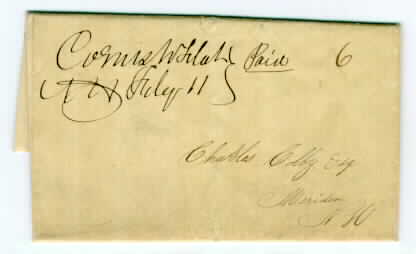 Cornish Flat Paid 6
N H Feby 11
Charles Colby Esq
Meriden
N H